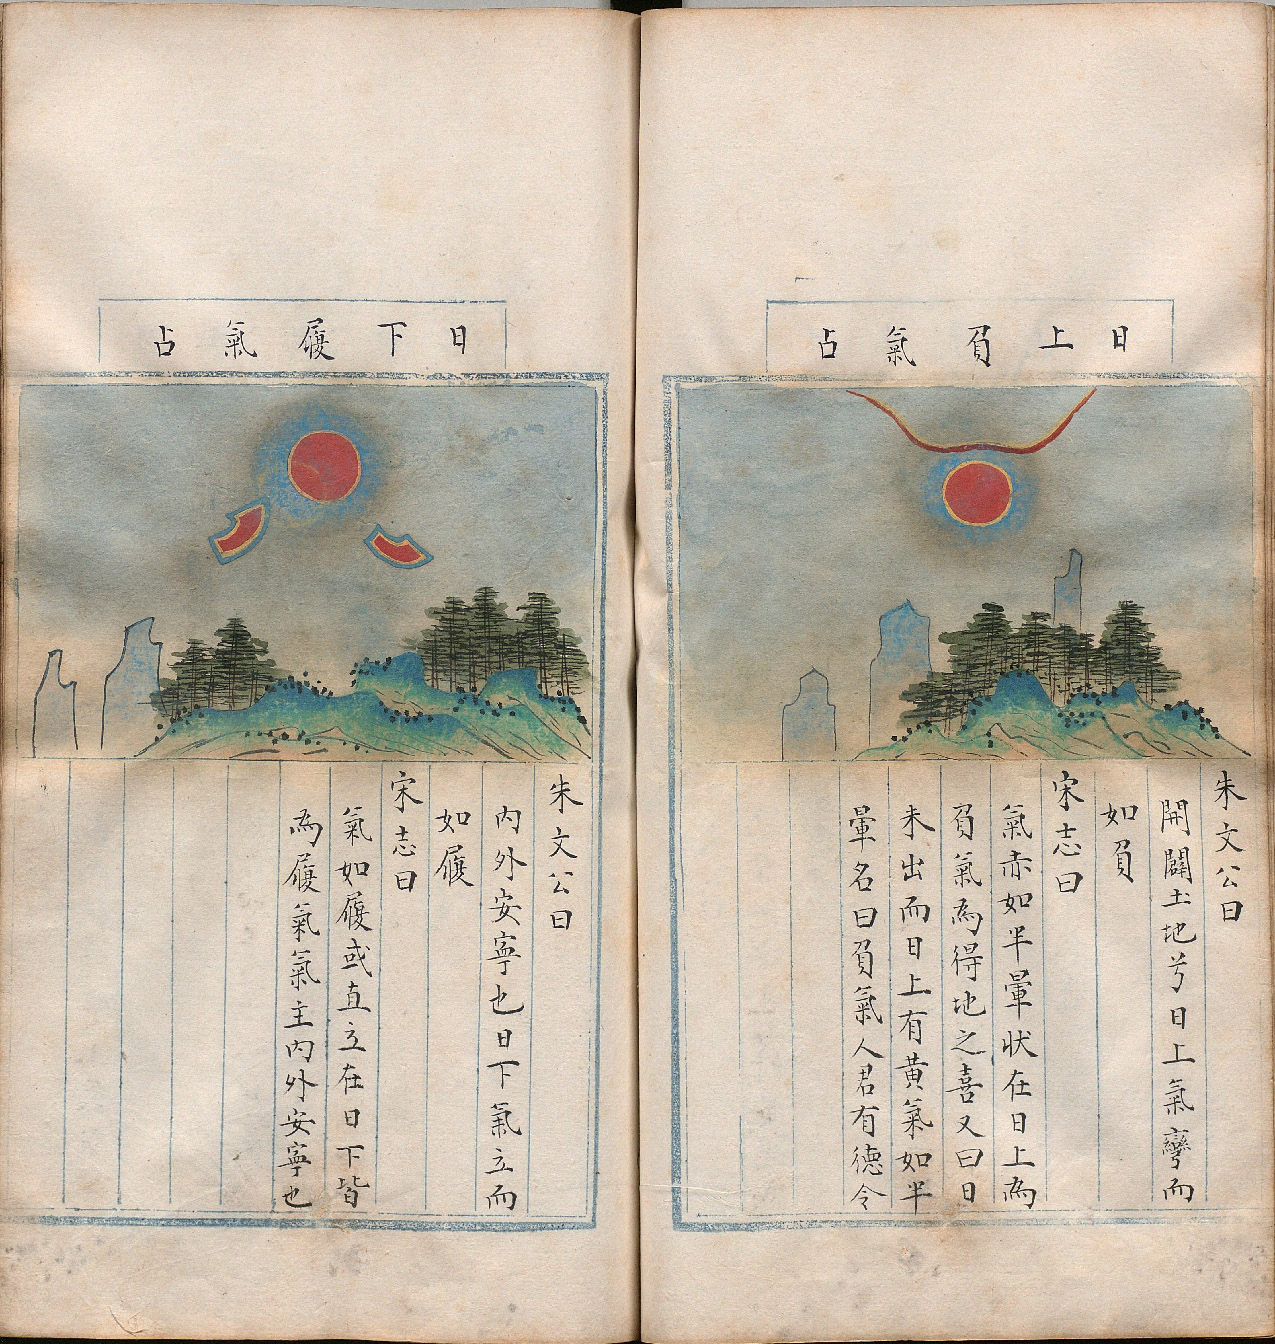 日上負氣占
朱文公曰
開闢土地兮日上氣彎而
如負
宋志曰
氣赤如半暈狀在日上為
負氣為得地之喜又曰日
未出而日上有黃氣如半
暈名曰負氣人君有德令
日下履氣占
朱文公曰
內外安寧也日下氣立而
如履
宋志曰
氣如履或直立在日下皆
為履氣氣主內外安寧也